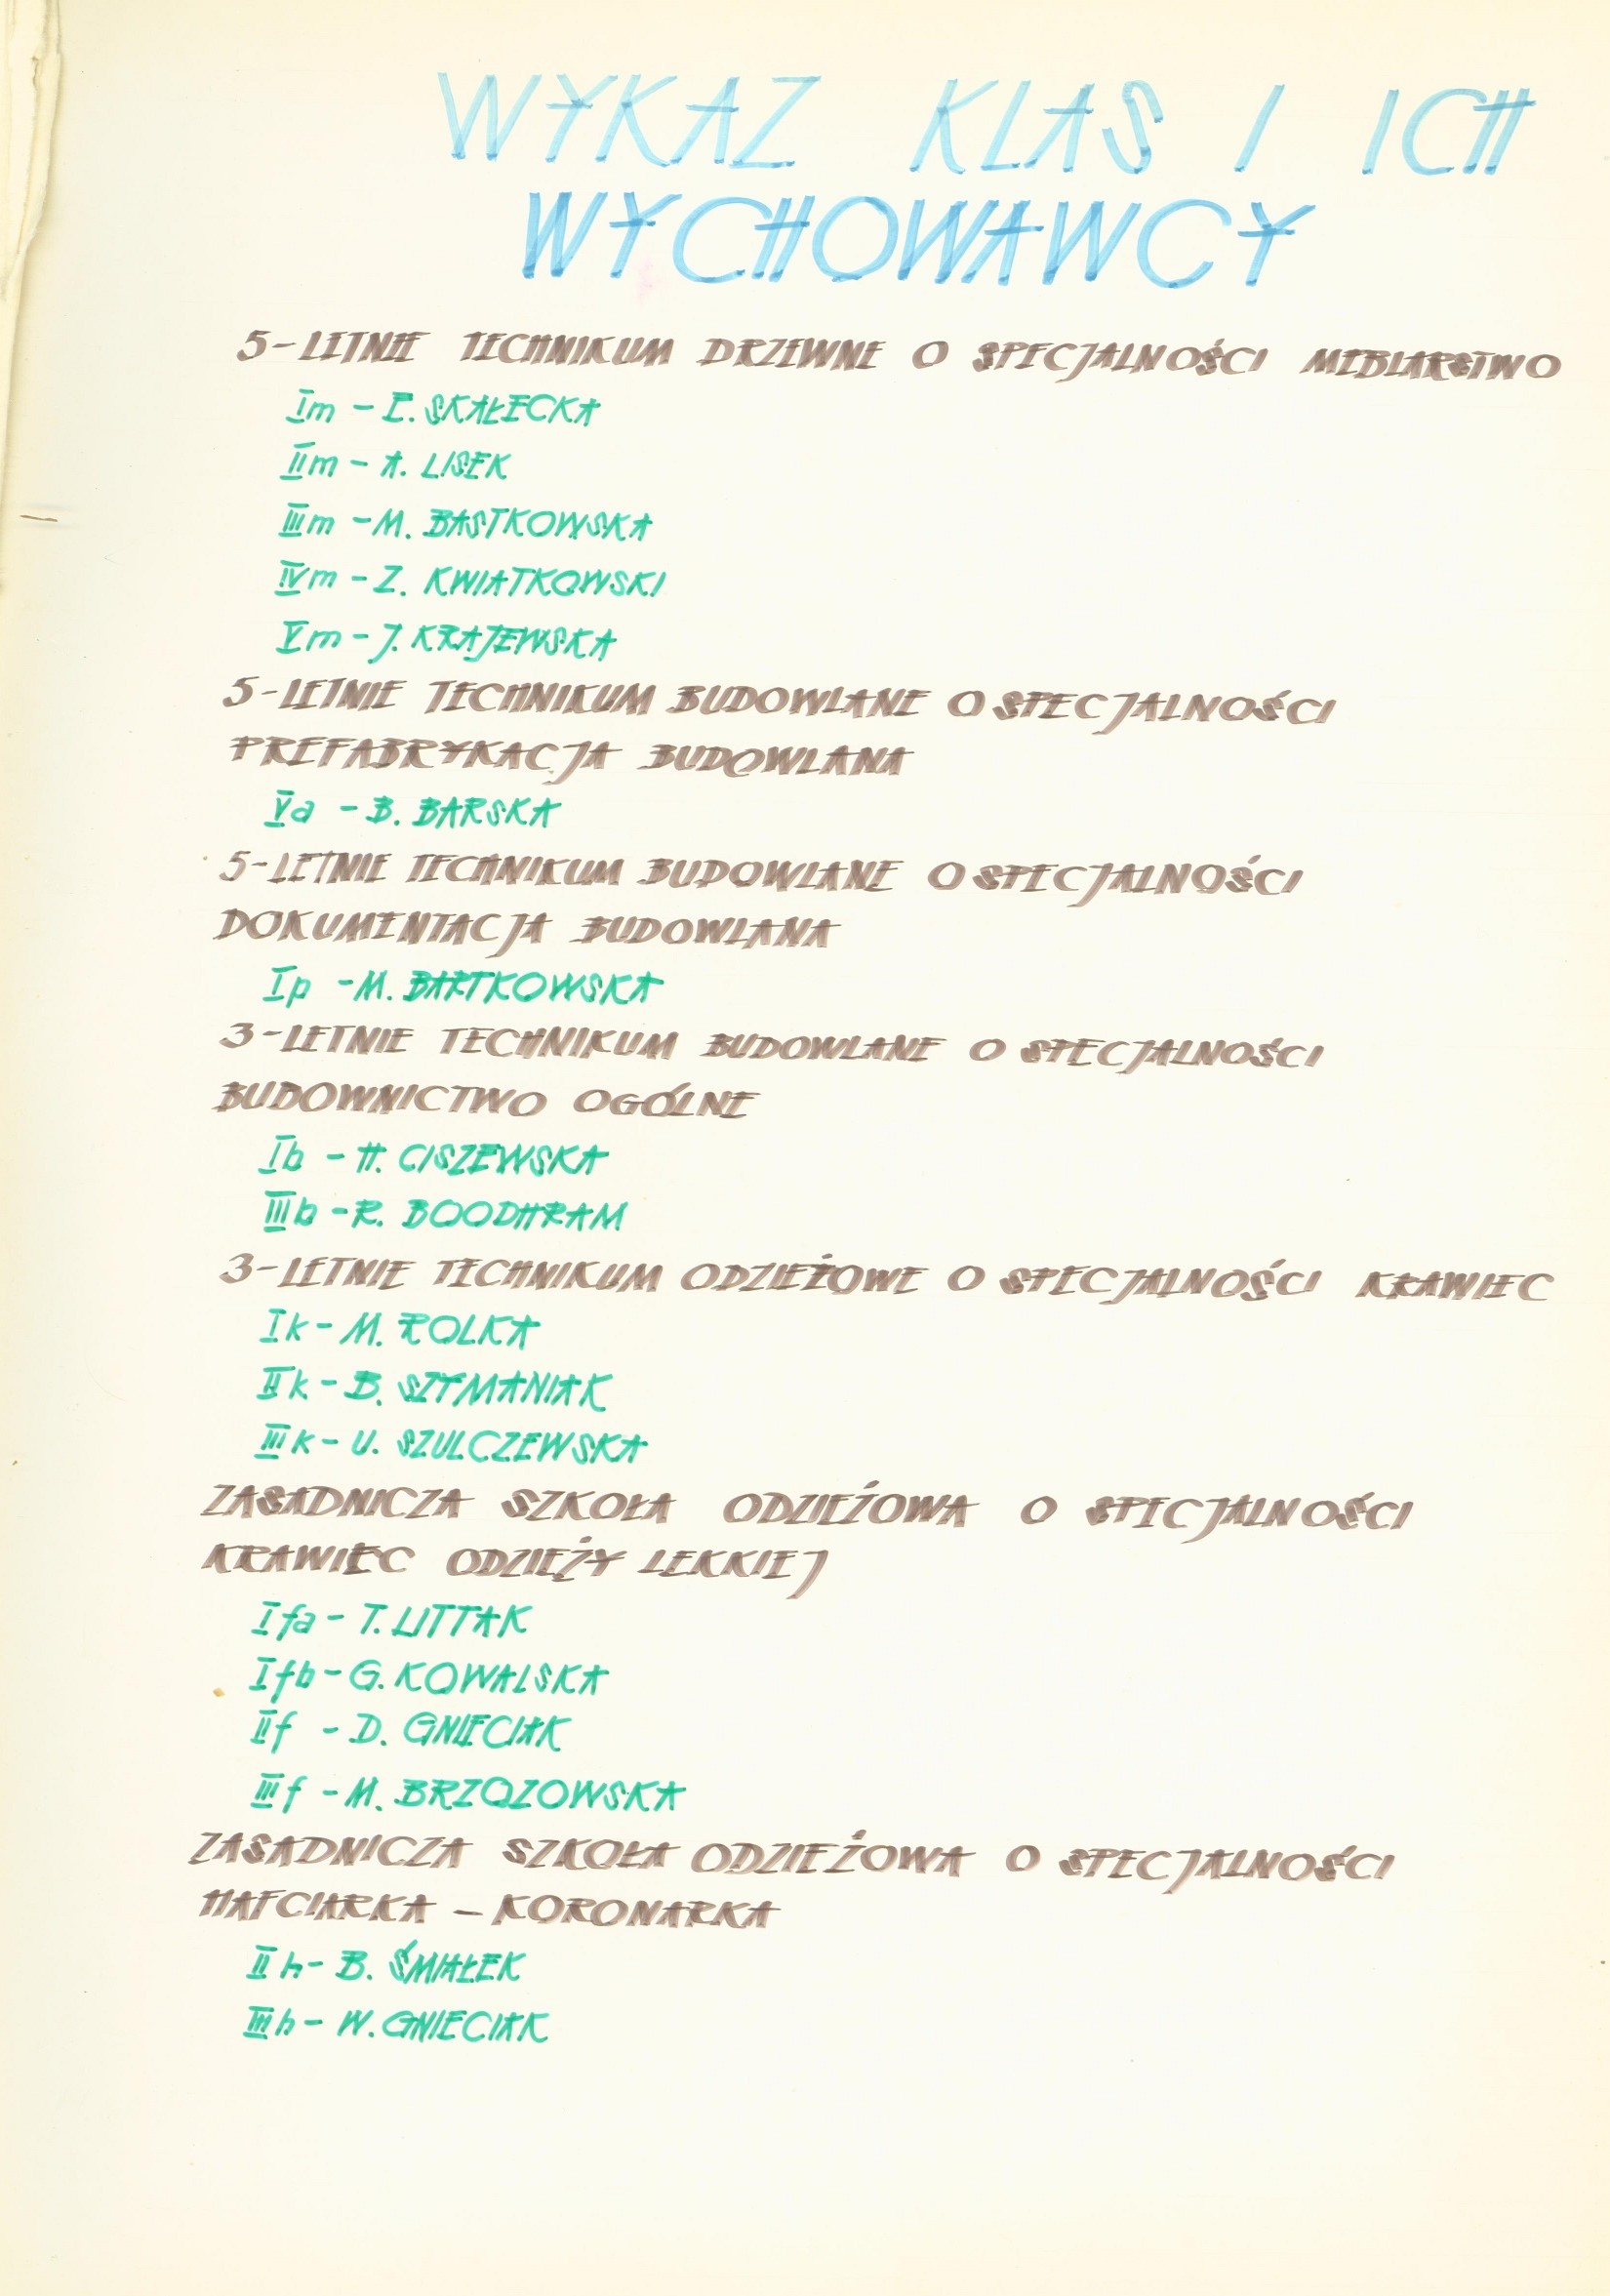 WYKAZ KLAS I ICH
WYCHOWAWCY
5-LETNIE TECHNIKUM DRZEWNE O SPECJALNOŚCI MEBLARSTWO
Im - E. SKAŁECKA
IIm - A. LISEK
IIIm - M. BASTKOWSKA
IVm - Z. KWIATKOWSKI
Vm - J. KRAJEWSKA
5-LETNIE TECHNIKUM BUDOWLANE O SPECJALNOŚCI
PREFABRYKACJA BUDOWLANA
Va - B. BARSKA
5-LETNIE TECHNIKUM BUDOWLANE O SPECJALNOŚCI
DOKUMENTACJA BUDOWLANA
Ip - M. BARTKOWSKA
3-LETNIE TECHNIKUM BUDOWLANE O SPECJALNOŚCI
BUDOWNICTWO OGÓLNE
Ib - H. CISZEWSKA
IIIb - R. BOODHRAM
3-LETNIE TECHNIKUM ODZIEŻOWE O SPECJALNOŚCI KRAWIEC
Ik - M. ROLKA
IIk - B. SZYMANIAK
IIIk - U. SZULCZEWSKA
ZASADNICZA SZKOŁA ODZIEŻOWA O SPECJALNOŚCI
KRAWIEC ODZIEŻY LEKKIEJ
Ifa - T. LITTAK
Ifb - G. KOWALSKA
IIf - D. GNIECIAK
IIIf - M. BRZOZOWSKA
ZASADNICZA SZKOŁA ODZIEŻOWA O SPECJALNOŚCI
HAFCIARKA - KORONARKA
IIh - B. ŚMIAŁEK
IIIh - W. GNIECIAK